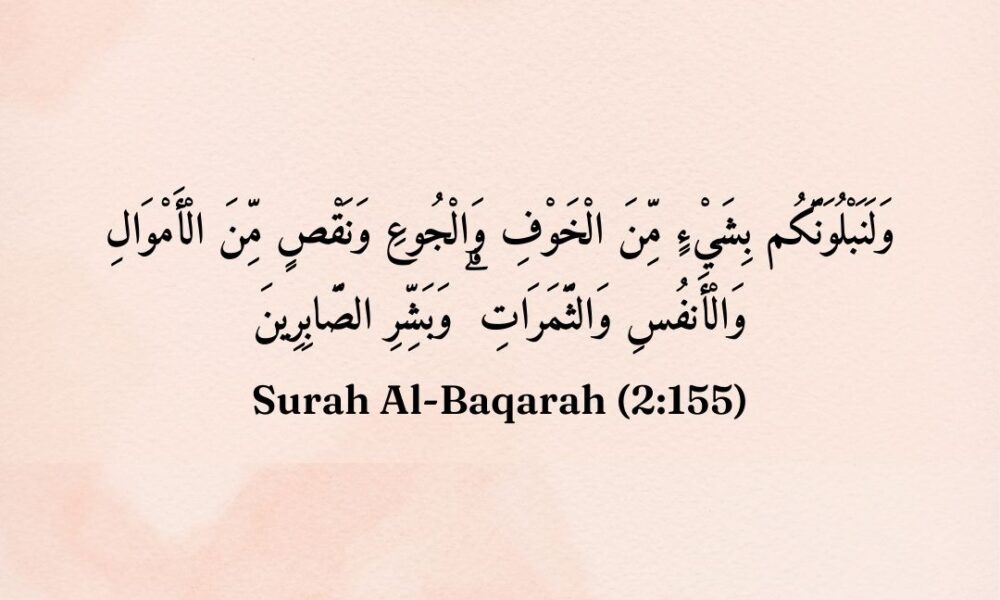 وَلَنَبْلُوَنَّكُم بِشَيْءٍ مِّنَ الْخَوْفِ وَالْجُوعِ وَنَقْصٍ مِّنَ الْأَمْوَالِ
وَالْأَنفُسِ وَالثَّمَرَاتِ ۗ وَبَشِّرِ الصَّابِرِينَ
Surah Al-Baqarah (2:155)